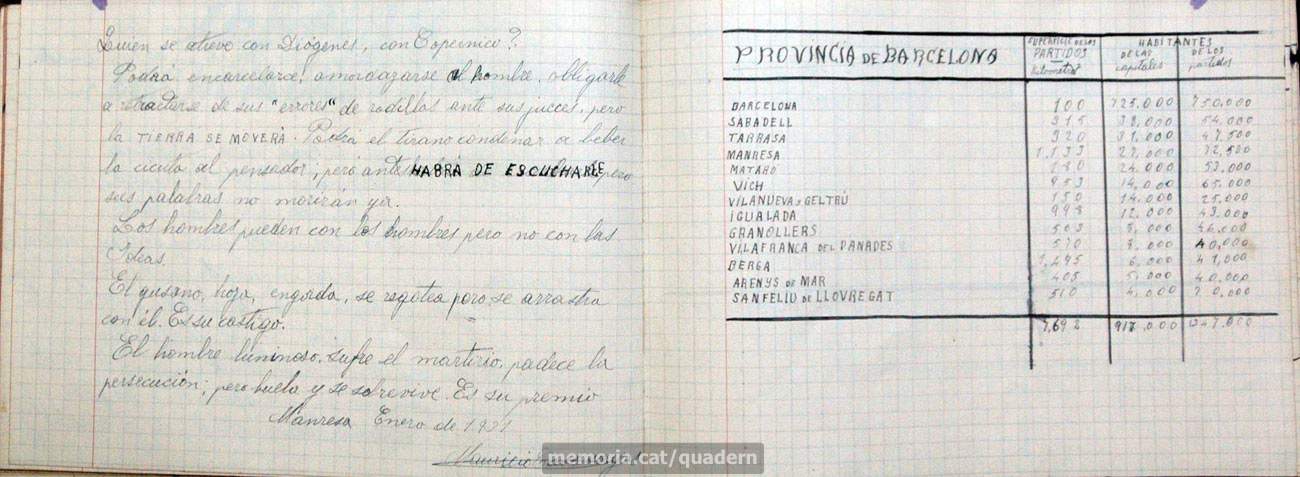 Quien se atreve con Diógenes, con Copernico?
Podrá encarcelarse, amordazarse al hombre, obligarle
a retractarse de sus "errores" de rodillas ante sus jueces, pero
la TIERRA SE MOVERÁ. Podrá el tirano condenar a beber
la cicuta al pensador, pero antes HABRÁ DE ESCUCHARLE
sus palabras no morirán ya.
Los hombres pueden con los hombres pero no con las
Ideas.
El gusano, hoza, engorda, se regotea pero se arrastra
con él. Es su castigo.
El hombre luminoso, sufre el martirio, padece la
persecución; pero buela y se sobrevive. Es su premio
Manresa Enero de
Mauricio
PROVINCIA DE BARCELONA SUPERFICIE DE LOS PARTIDOS Kilometros HABITANTES DE LAS capitales DE LOS partidos
BARCELONA 100 725.000 750,000
SABADELL 315 38,000 54,000
TARRASA 320 31,000 47,500
MANRESA 1,133 27,000 72,500
MATARÓ 280 24,000 53,000
VICH 953 14,000 65,000
VILANUEVA Y GELTRÚ 150 14,000 25,000
IGUALADA 998 12,000 43,000
GRANOLLERS 503 8,000 46,000
VILAFRANCA DEL PANADES 570 8,000 40,000
BERGA 1,245 6,000 41,000
ARENYS DE MAR 405 5,000 40,000
SANFELIU DE LLOVREGAT 510 4,000
7,692 917,000
memoria.cat/quadern